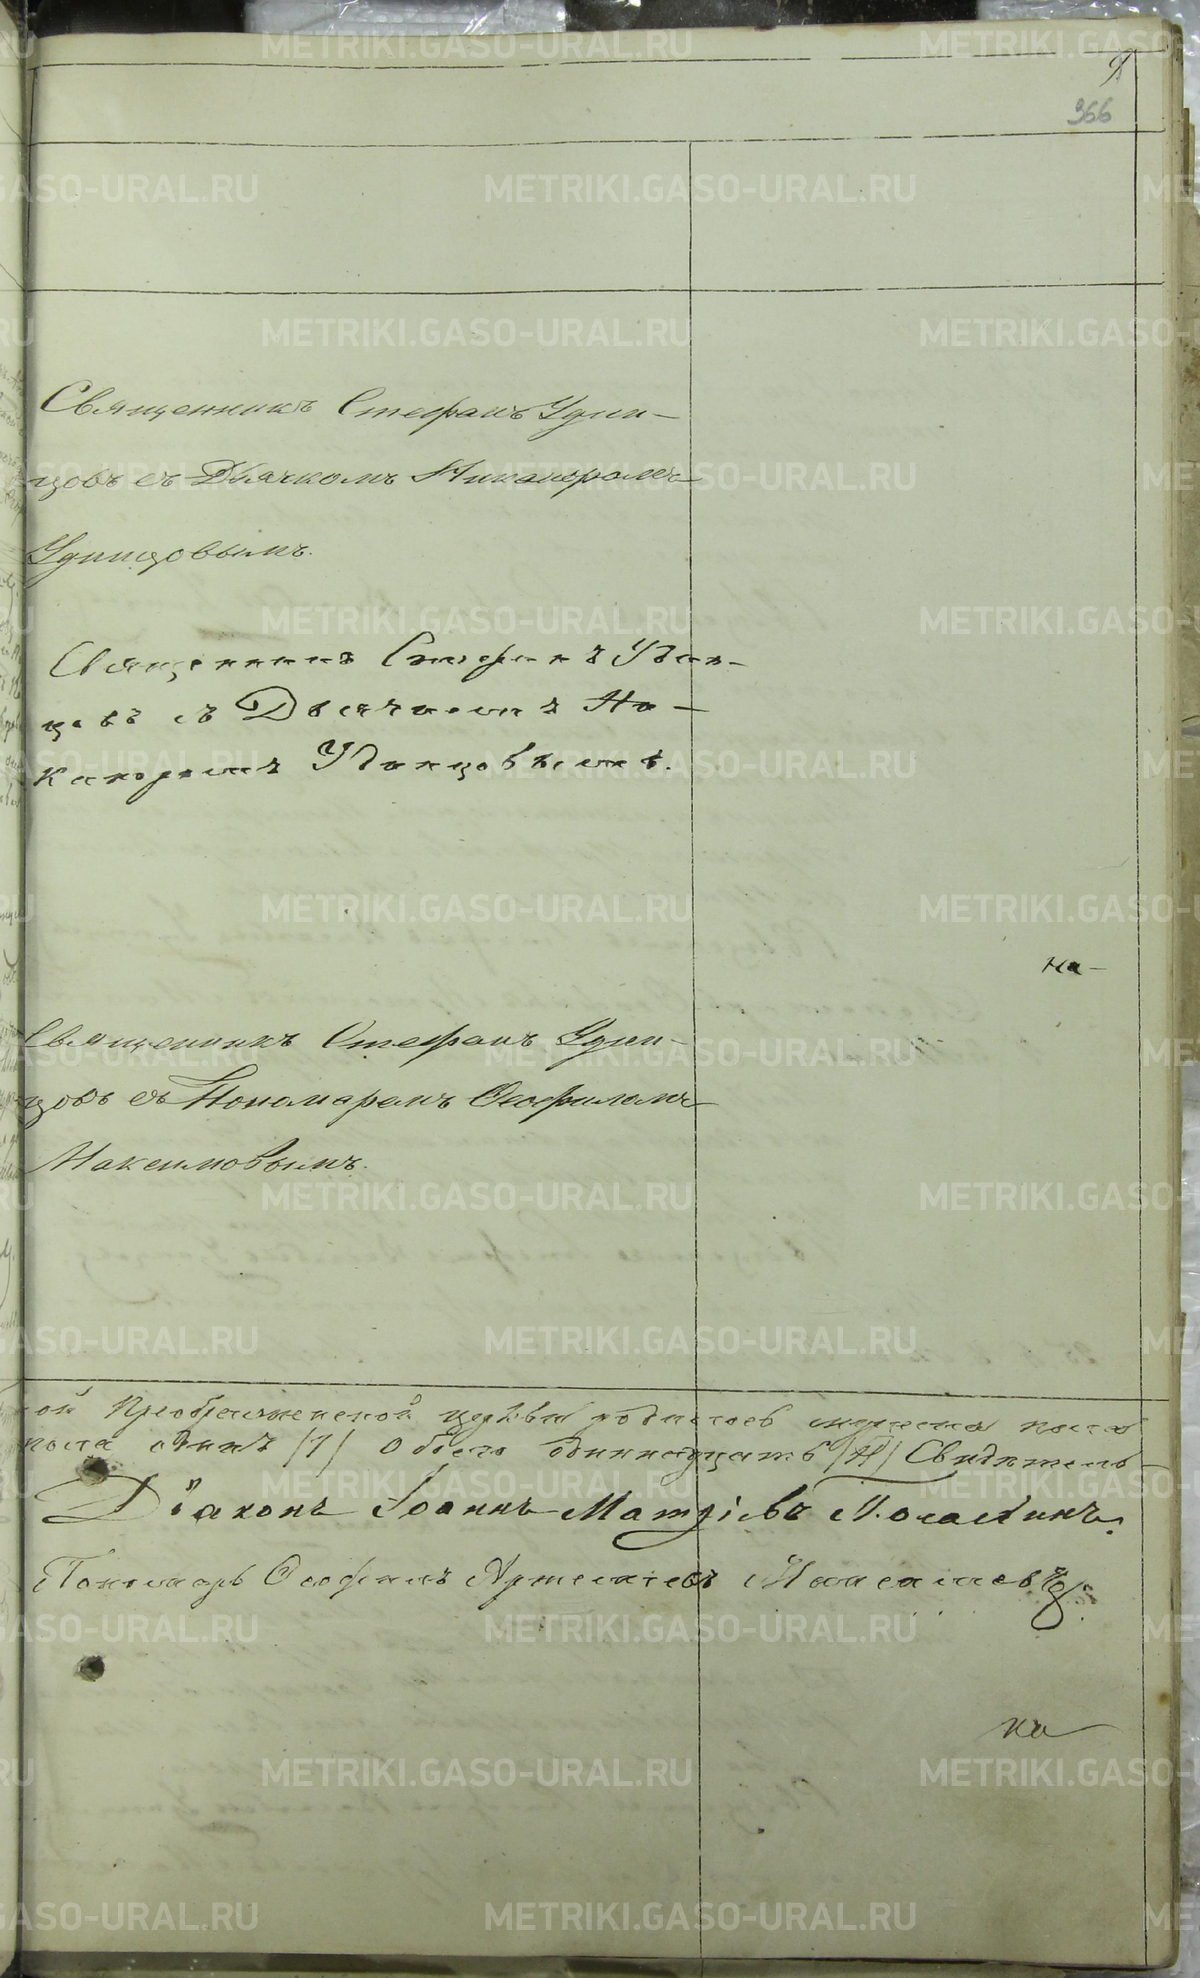 9
366
Священникъ Стефанъ Удин-
цовъ съ Дьячкомъ Никаноромъ
Удинцовымъ.
Священникъ Стефанъ Удин-
цовъ съ Дьячкомъ Ни-
каноромъ Удинцовымъ.
на-
Священникъ Стефанъ Удин-
цовъ съ Пономаремъ Феофиломъ
Максимовымъ.
ой Преображенской церкви родилось мужеска пола
пола одинъ /1/ обоего одиннадцать /11/ Свидѣтель-
Діаконъ Іоаннъ Матѳіевъ
Пономарь Феофилъ Артемьевъ Максимовъ
на
METRIKI.GASO-URAL.RU